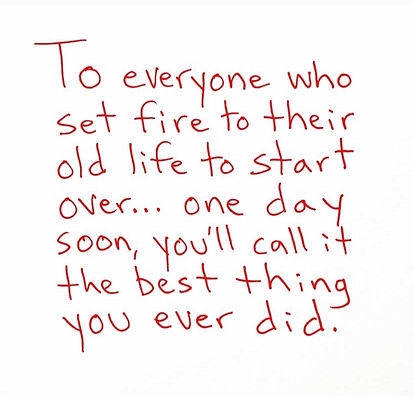 To everyone who
set fire to their
old life to start
over... one day
soon, you'll call it
the best thing
you ever did.